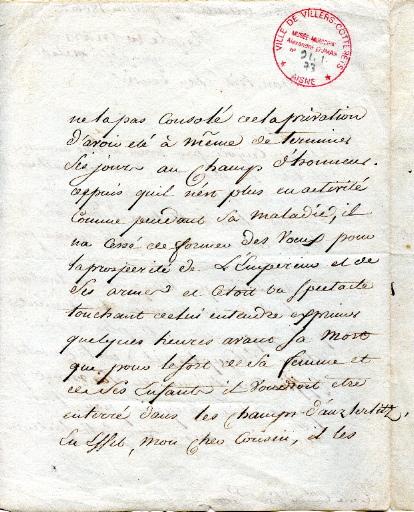 VILLE DE VILLERS-COTTERETS
MUSÉE MUNICIPAL
Alexandre DUMAS
N°
91.1.
73
* AISNE *
ne la pas Consolé de la privation
d'avoir eté à même de terminer
Ses jours au Champ d'honneur.
depuis quil n'est plus en activité
Comme pendant Sa maladie, il
na Cessé de former des Voeux pour
la prosperité de L'Empereur et de
Ses armes et C'etoit un Spectacle
touchant de lui entendre exprimer
quelques heures avant Sa Mort
que pour le fort de Sa femme et
de Ses Enfants il Voudroit etre
enterré dans les Champs d'austerlitz,
En Effet, Mon Cher Cousin, il les